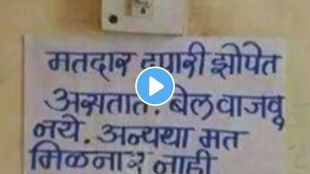 मतदार दुपारी झोपेत
असतात. बेल वाजवू
नये. अन्यथा मत
मिळनार नाही